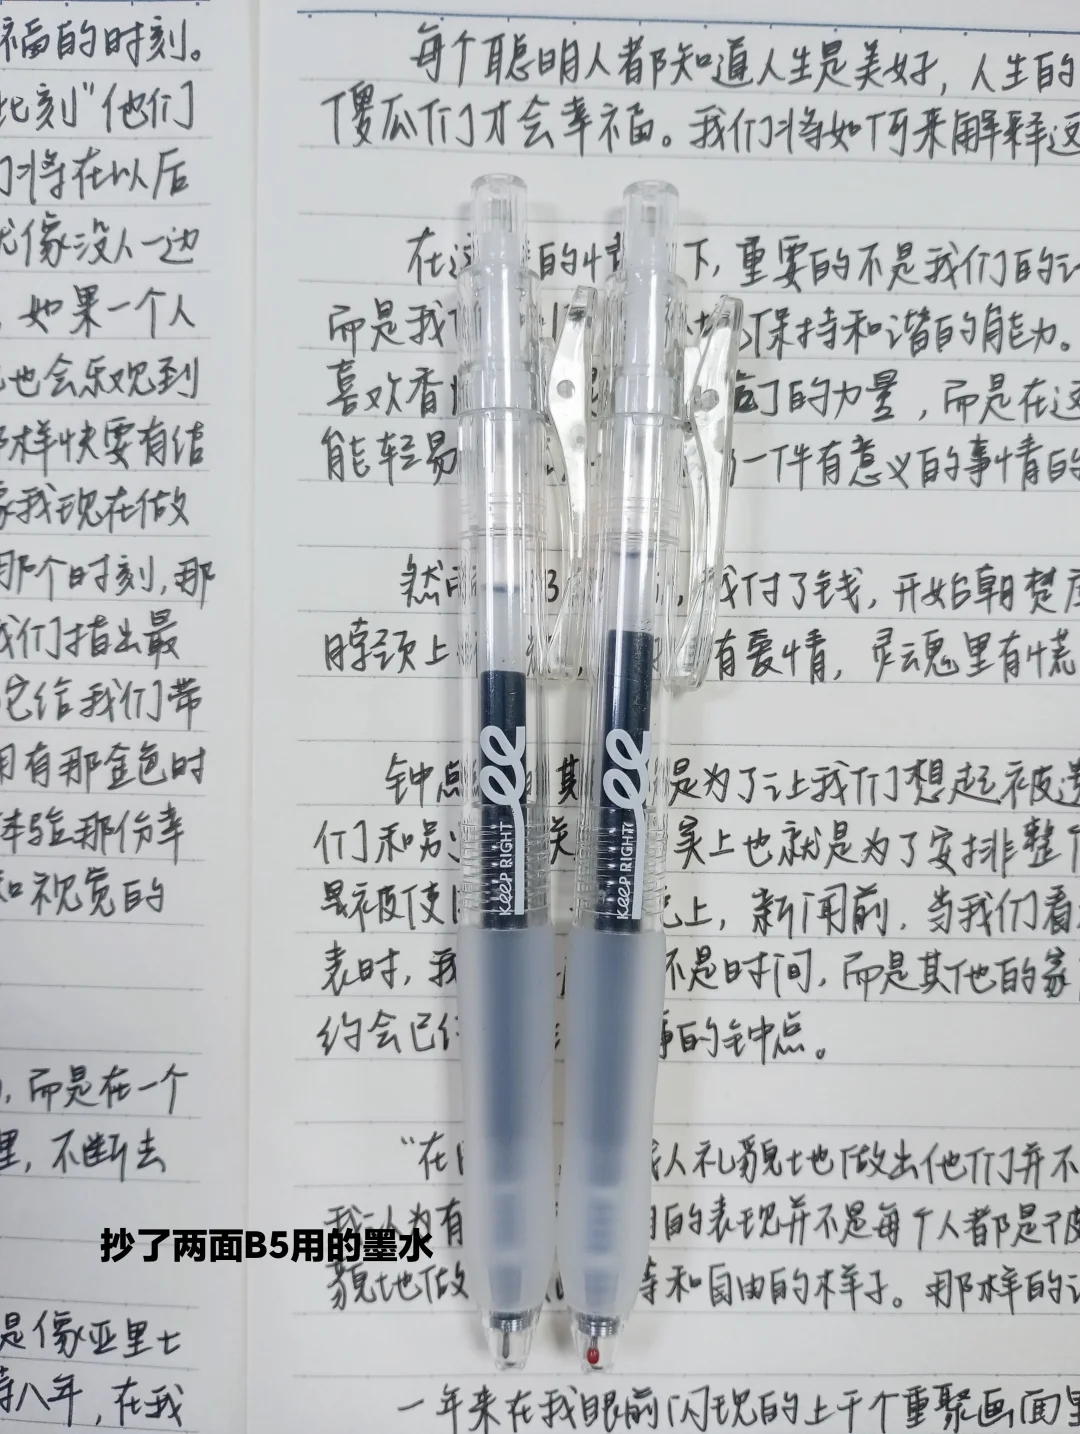 福的时刻。
此刻"他们
们将在以后
就像没人一边
，如果一个人
也会乐观到
那样快要有结
像我现在做
那个时刻，那
我们指出最
它给我们带
拥有那金色时
体验那份幸
和视觉的
，而是在一个
里，不断去
是像亚里士
待八年，在我
每个聪明人都知道人生是美好，人生的
傻瓜们才会幸福。我们将如何来解释这
在这 的情 下，重要的不是我们的
而是我 保持和谐的能力。
喜欢香 的力量，而是在这
能轻易 一件有意义的事情的
然而 3 ，我付了钱，开始朝楚
脖颈上 有爱情，灵魂里有慌
钟点 其 是为了让我们想起被遗
们和另 关 实上也就是为了安排整个
是被使 上，新闻前，当我们看
表时，我 不是时间，而是其他的家
约会已 事的钟点。
"在 人礼貌地做出他们并不
我认为有 的表现并不是每个人都是
貌地做 等和自由的样子。那样的
一年来在我眼前闪现的上千个重聚画面里
KEEP RIGHT
KEEP RIGHT
抄了两面B5用的墨水